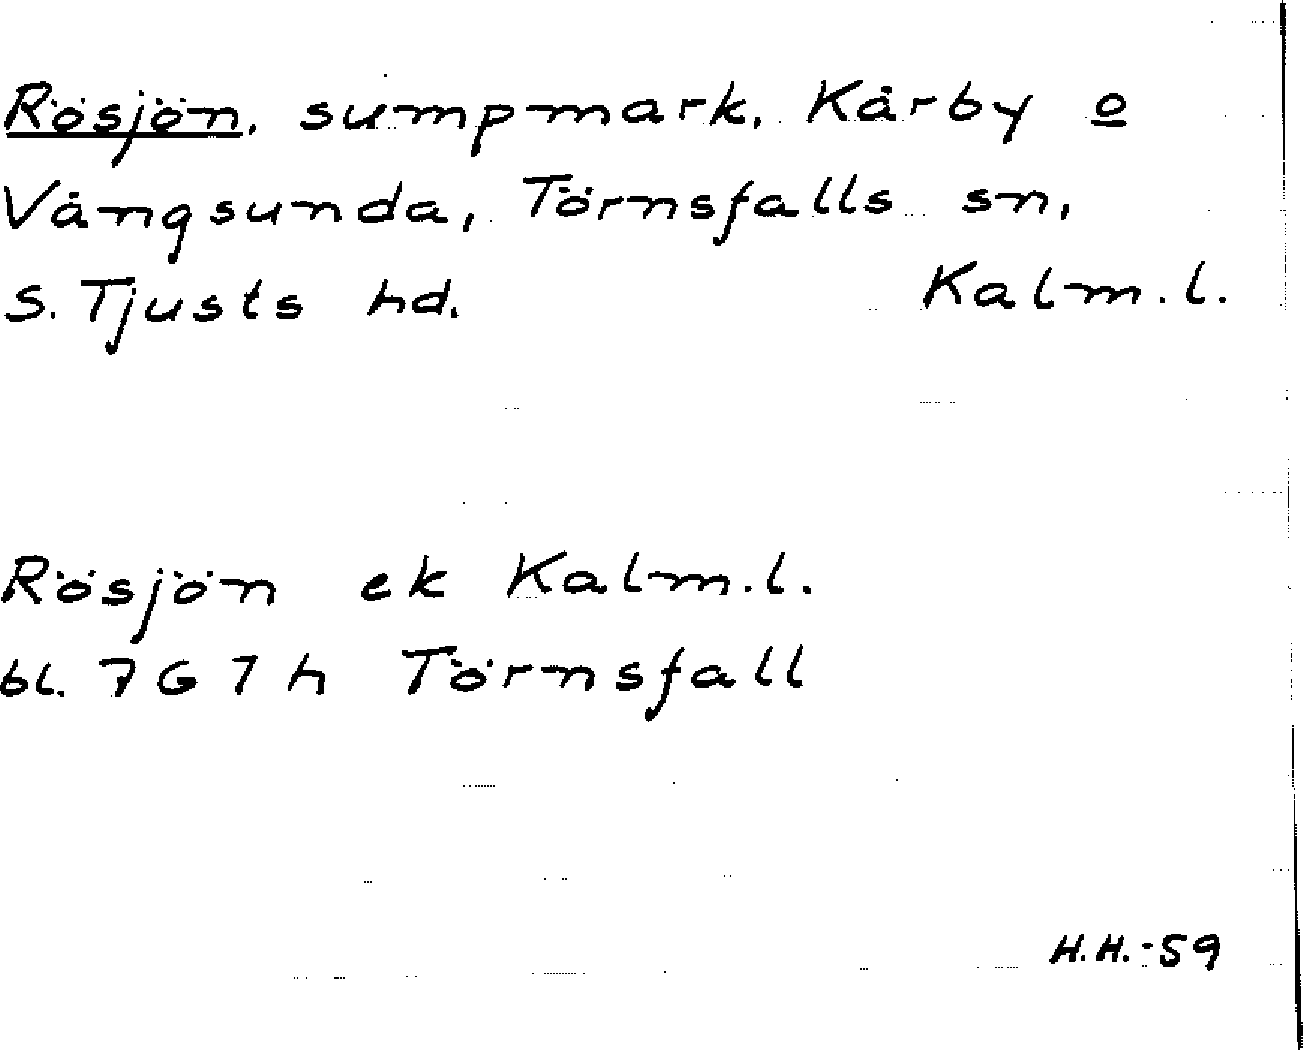 Rösjön, sumpmark, Kårby o
Vångsunda, Törnsfalls sn,
S. Tjusts hd. Kalm. l.
Rösjön ek Kalm. l.
bl. 7G7h Törnsfall
H.H. -59